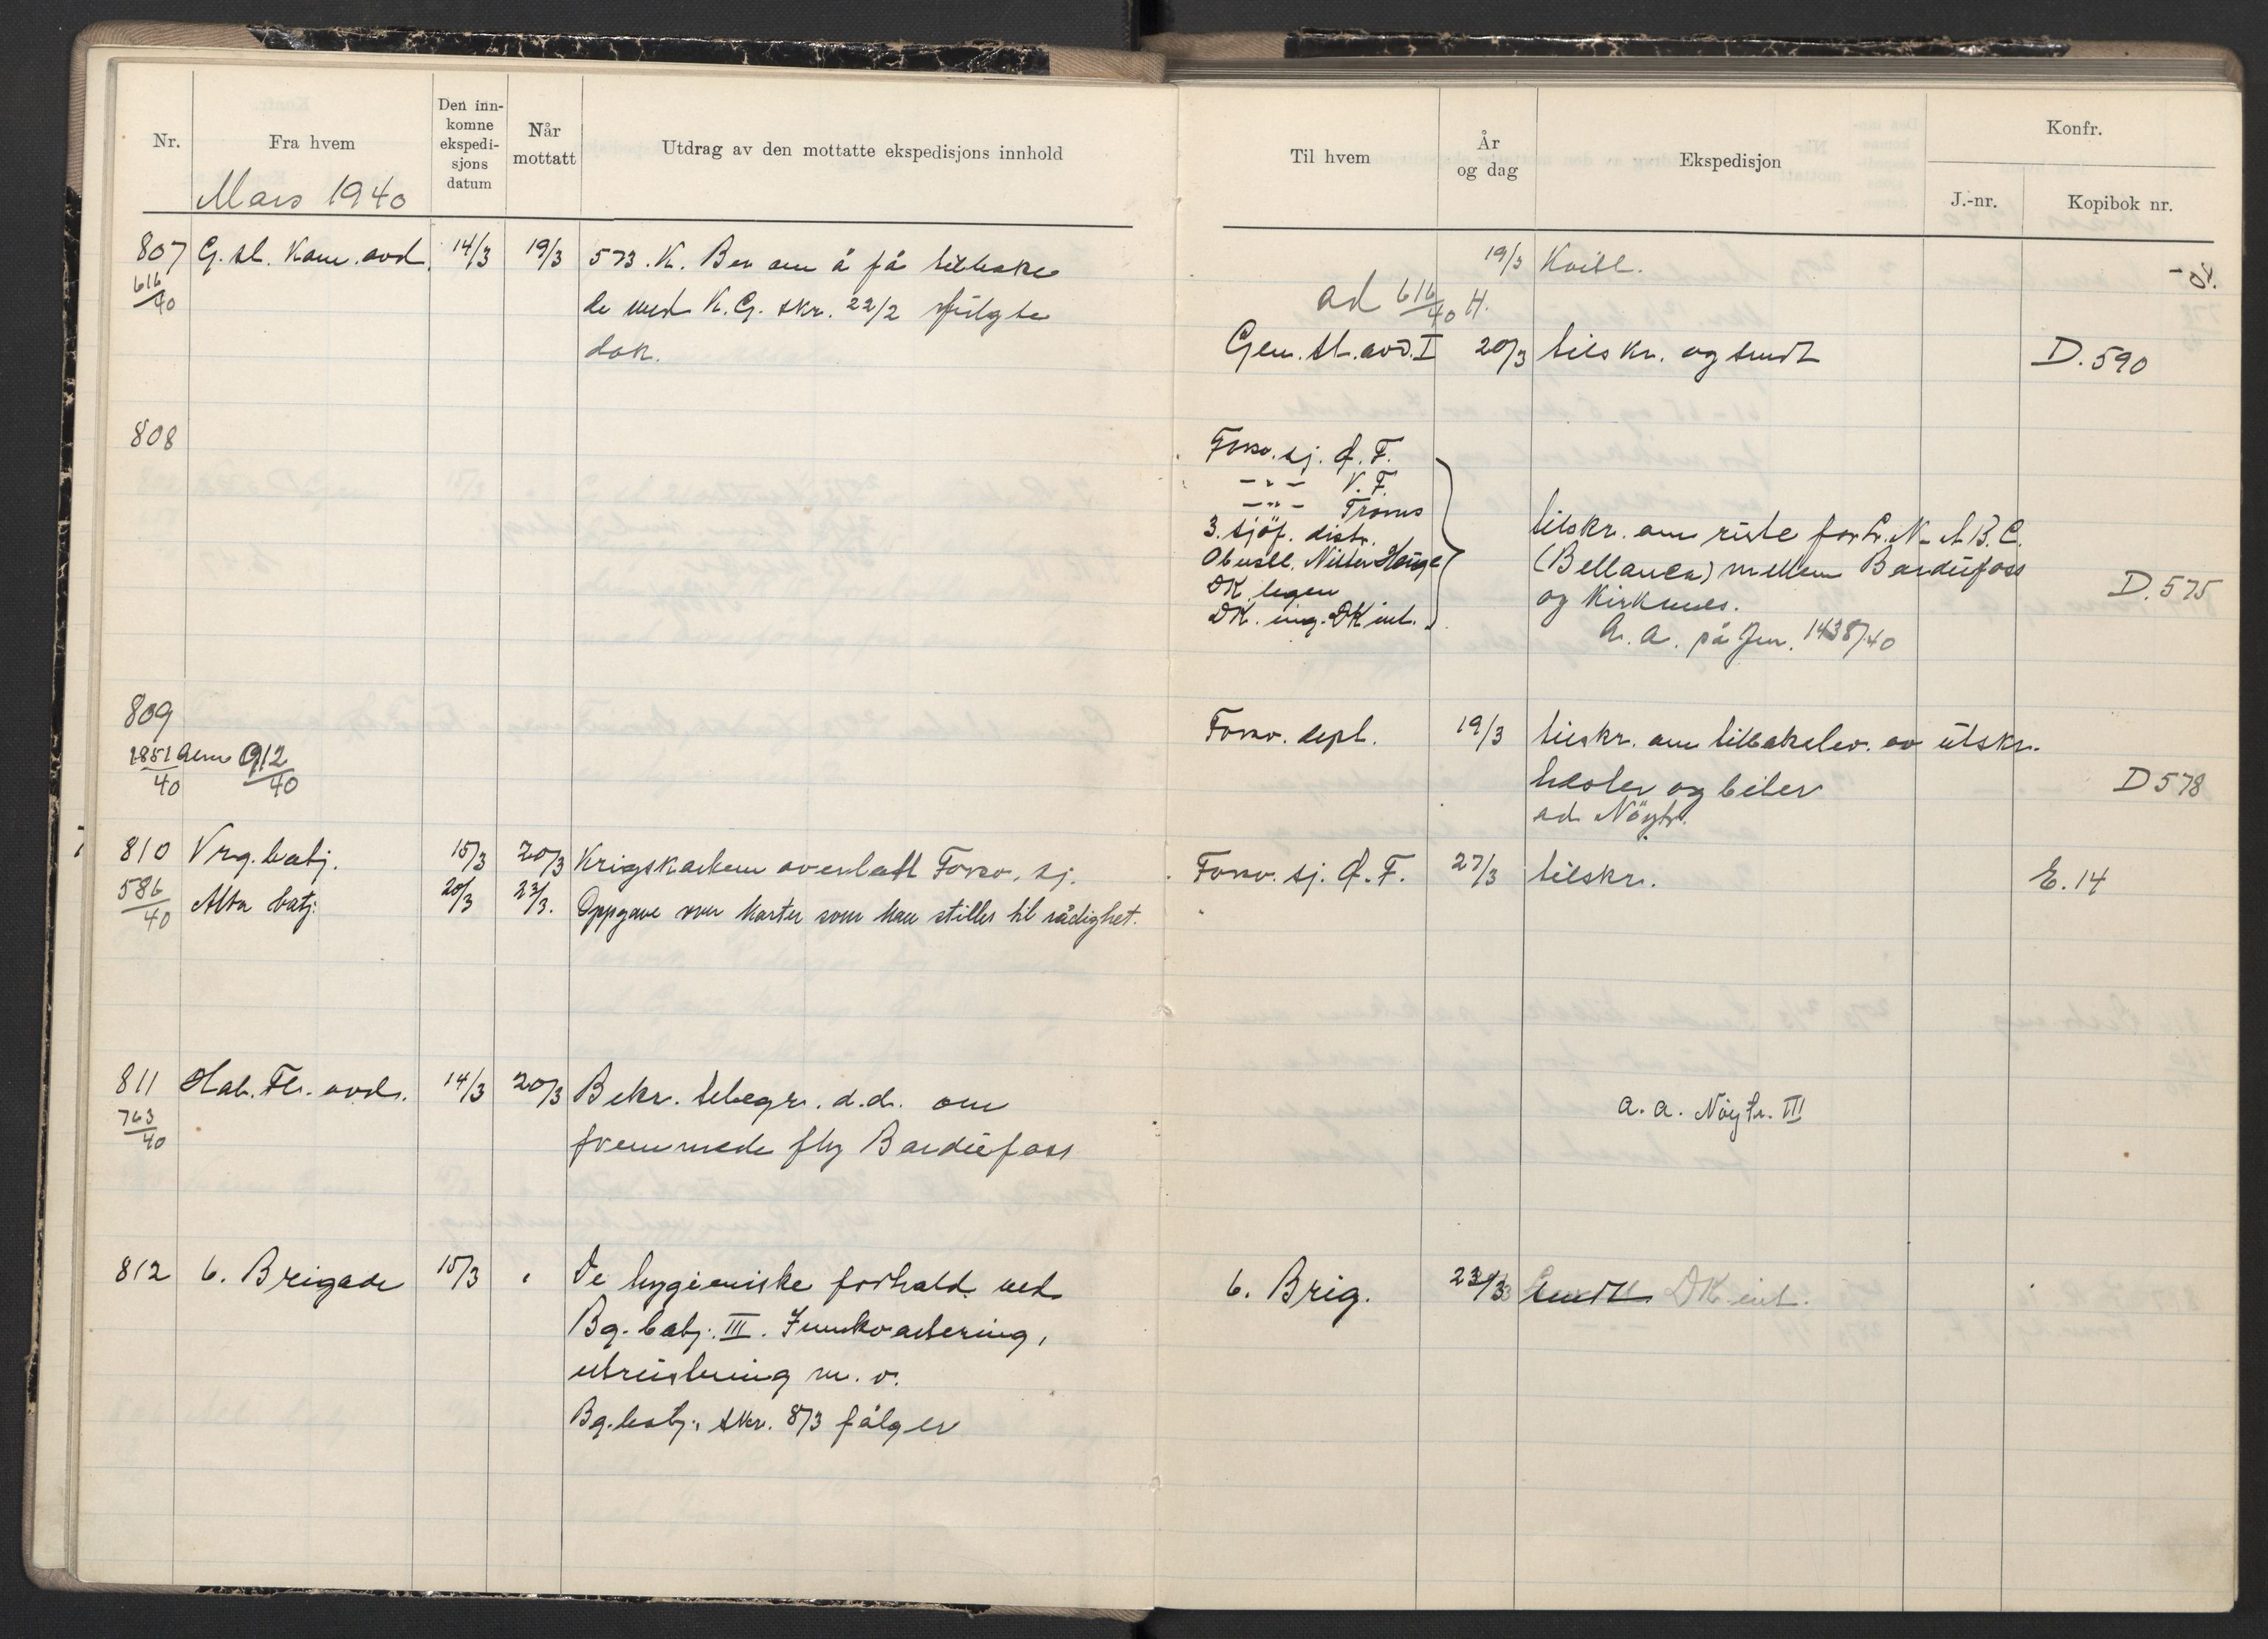 Nr.
Fra hvem
Den inn-
komne
ekspedi-
sjons
datum
Når
mottatt
Utdrag av den mottatte ekspedisjons innhold
Mars 1940
807 G.st. Kom. avd. 14/3 19/3 573. K. Ber om å få tilbake
616/40
de med K.G. skr. 22/2 fulgte
dok.
808
809
1851 alm 912
40 40
810 Vrg. batj. 15/3 20/3 Krigskartene overlatt Forsv. sj.
586/40 Alta batj. 20/3 23/3. Oppgave over karter som kan stilles til rådighet.
811 Hål. Fl. avd. 14/3 20/3 Bekr. telegr. d.d. om
763/40
fremmede fly Bardufoss
812 6. Brigade 15/3 " De hygieniske forhold ved
Bg. batj. III. Innkvartering,
utrustning m. v.
Bg. batj. skr. 8/3 følger
Til hvem
År
og dag
Ekspedisjon
Konfr.
J.-nr.
Kopibok nr.
19/3 Kvitt.
ad 616/40 H.
Gen. st. avd. I 20/3 tilskr. og sendt D. 590
Forsv. sj. Ø. F.
-"- V. F.
-"- Troms
3. sjöf. distr.
Oberstl. Nitter Hauge
DK legen
DK. ing. DK int.
tilskr. om rute for
(Bellanca) mellem Bardufoss
og Kirkenes.
D. 575
a. a. på Jnr. 1438/40
Forsv. dept. 19/3 tilskr. om tilbakelev. av utskr.
hester og biler
D 578
ad Nöytr.
Forsv. sj. Ø. F. 27/3 tilskr. E. 14
a. a. Nöytr. III
6. Brig. 23/3 sendt DK int.